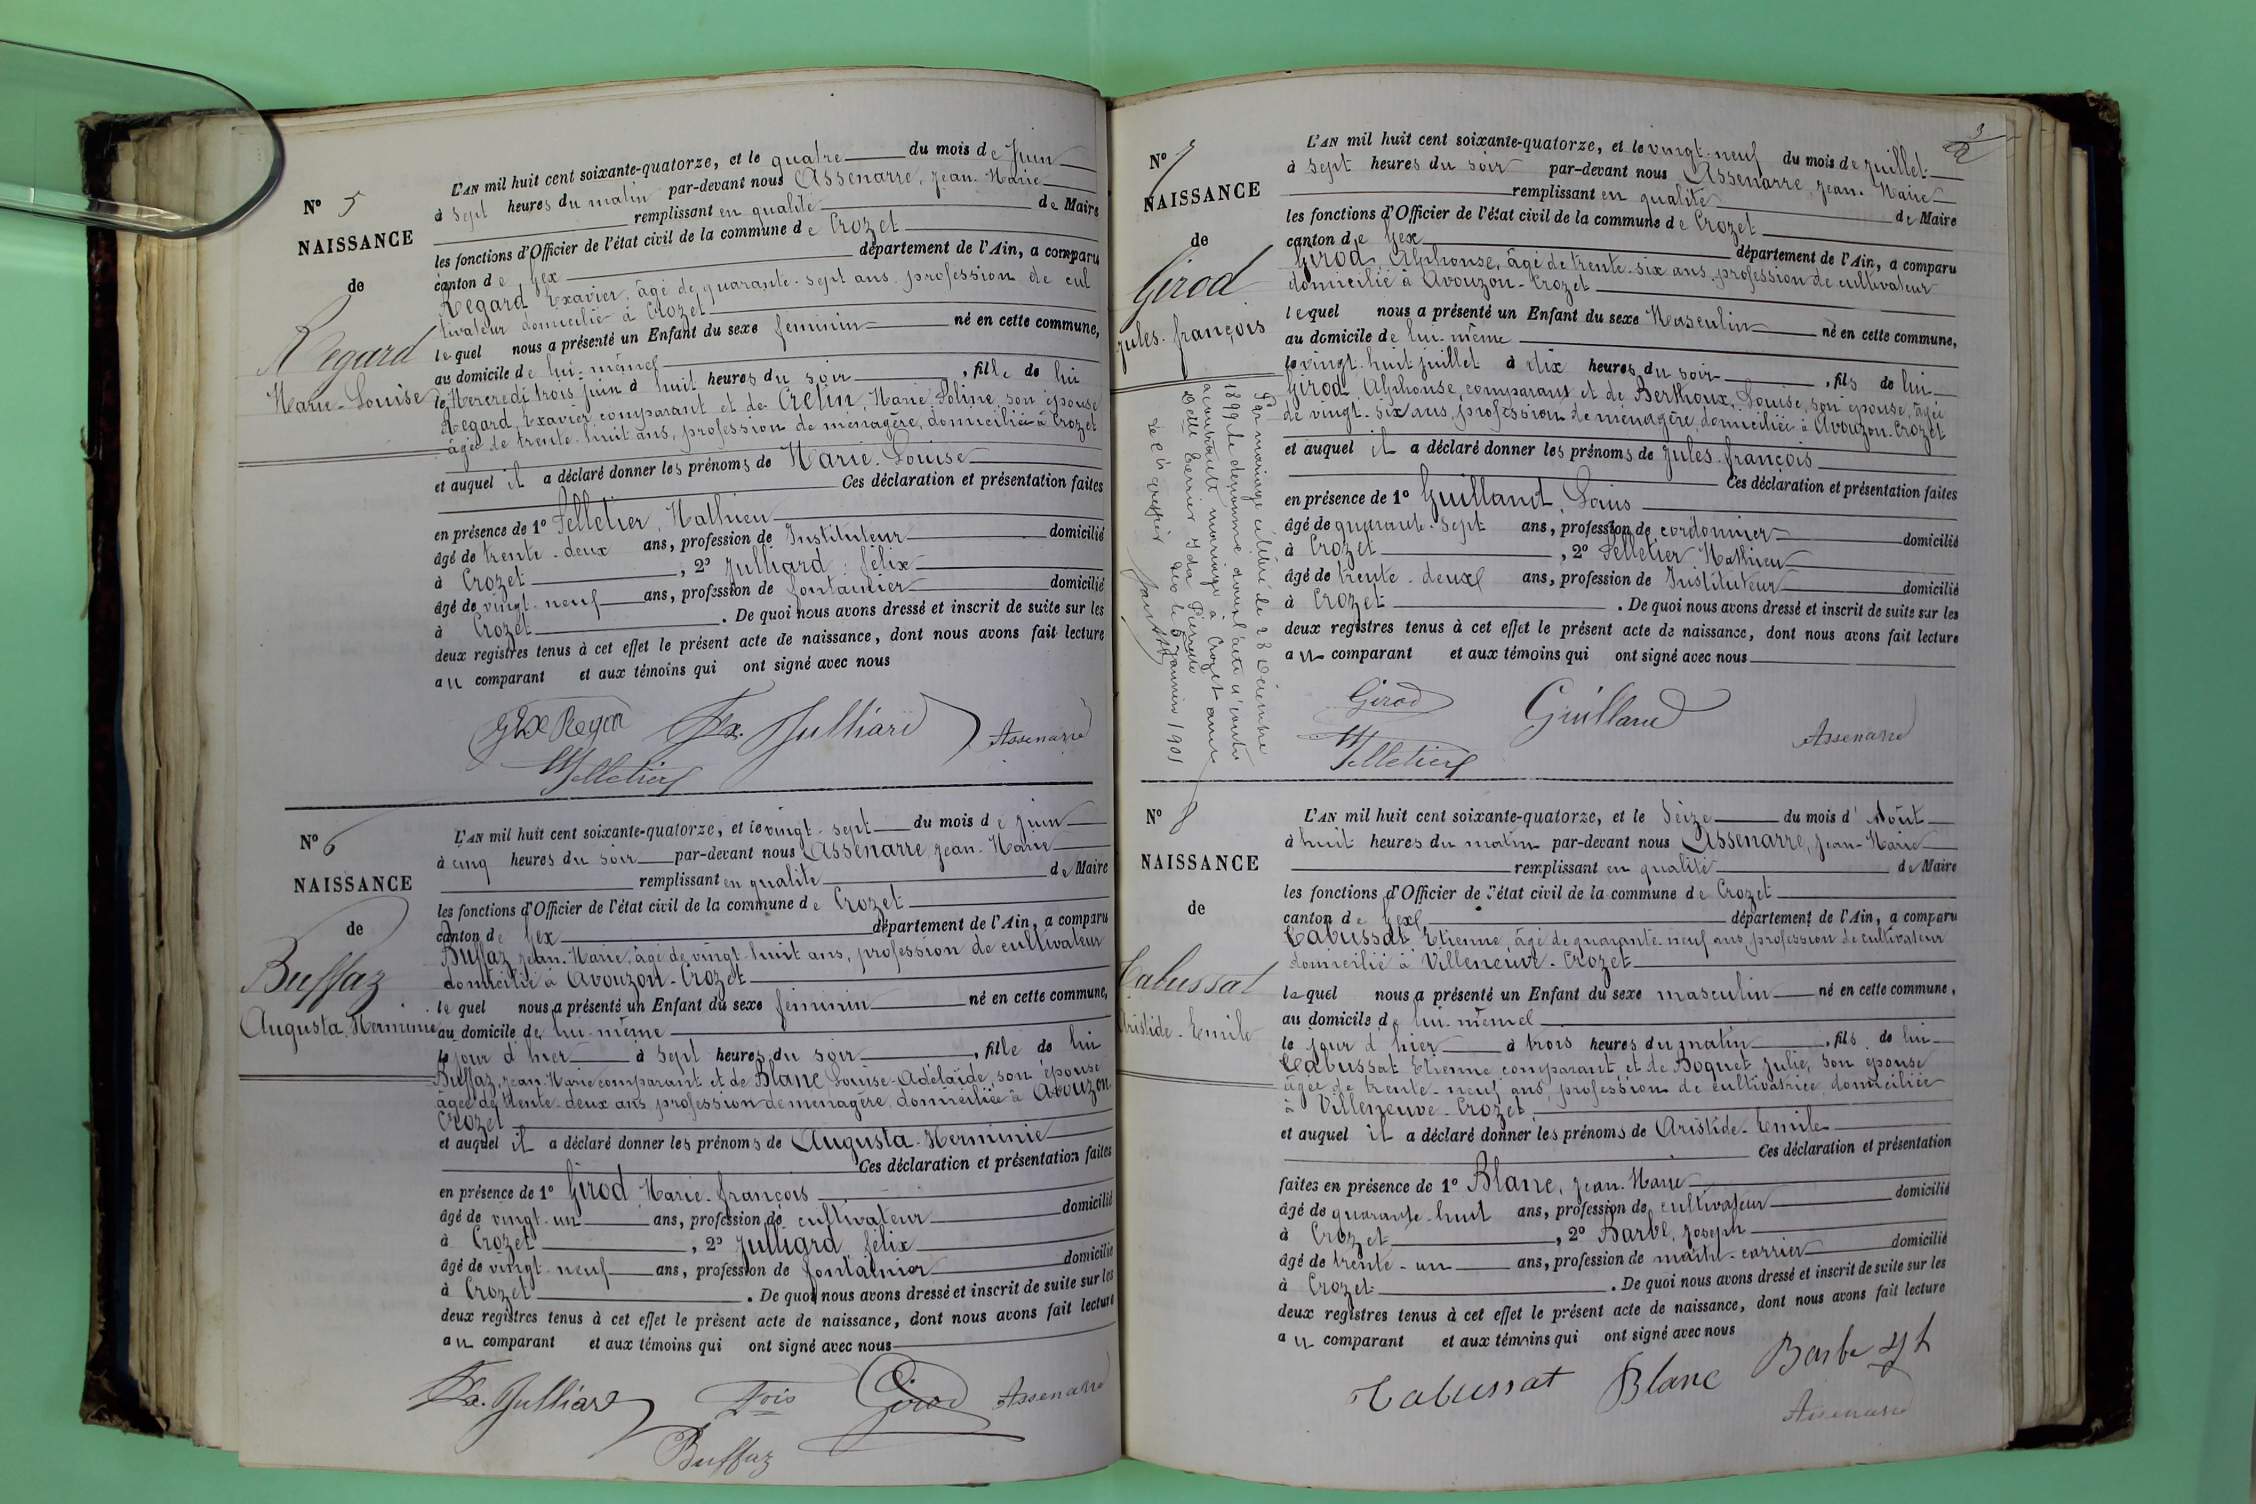 N° 5
NAISSANCE
de
Regard
Marie-Louise
L'AN mil huit cent soixante-quatorze, et le quatre du mois de Juin
à sept heures du matin par-devant nous Assenarre, Jean-Marie
remplissant en qualité de Maire
les fonctions d'Officier de l'état civil de la commune de Crozet
canton de Gex département de l'Ain, a comparu
Regard Exavier, âgé de quarante-sept ans, profession de cul
tivateur domicilié à Crozet
lequel nous a présenté un Enfant du sexe féminin né en cette commune,
au domicile de lui-même
le Mercredi trois juin à huit heures du soir, fille de lui
Regard, Exavier, comparant et de Cretin, Marie Poline, son épouse
âgée de trente-huit ans, profession de ménagère, domiciliée à Crozet
et auquel il a déclaré donner les prénoms de Marie-Louise
Ces déclaration et présentation faites
en présence de 1° Pelletier, Mathieu
âgé de trente-deux ans, profession de Instituteur domicilié
à Crozet, 2° Julliard, félix
âgé de vingt-neuf ans, profession de fontainier domicilié
à Crozet. De quoi nous avons dressé et inscrit de suite sur les
deux registres tenus à cet effet le présent acte de naissance, dont nous avons fait lecture
au comparant et aux témoins qui ont signé avec nous
Fx. Julliard Assenarre
Pelletier
N° 6
NAISSANCE
de
Buffaz
Augusta Herminie
L'AN mil huit cent soixante-quatorze, et le vingt-sept du mois de juin
à cinq heures du soir par-devant nous Assenarre, Jean-Marie
remplissant en qualité de Maire
les fonctions d'Officier de l'état civil de la commune de Crozet
canton de Gex département de l'Ain, a comparu
Buffaz Jean-Marie, âgé de vingt-huit ans, profession de cultivateur
domicilié à Avouzon-Crozet
lequel nous a présenté un Enfant du sexe féminin né en cette commune,
au domicile de lui-même
le jour d'hier à sept heures du soir, fille de lui
Buffaz, Jean-Marie comparant et de Blanc Louise-Adélaïde, son épouse
âgée de trente-deux ans, profession de ménagère, domiciliée à Avouzon
Crozet
et auquel il a déclaré donner les prénoms de Augusta-Herminie
Ces déclaration et présentation faites
en présence de 1° Girod Marie-françois
âgé de vingt-un ans, profession de cultivateur domicilié
à Crozet, 2° Julliard, félix
âgé de vingt-neuf ans, profession de fontainier domicilié
à Crozet. De quoi nous avons dressé et inscrit de suite sur les
deux registres tenus à cet effet le présent acte de naissance, dont nous avons fait lecture
au comparant et aux témoins qui ont signé avec nous
Fx. Julliard Fois Girod Assenarre
Buffaz
3
N° 7
NAISSANCE
de
Girod
Jules-françois
L'AN mil huit cent soixante-quatorze, et le vingt-neuf du mois de juillet
à sept heures du soir par-devant nous Assenarre, Jean-Marie
remplissant en qualité de Maire
les fonctions d'Officier de l'état civil de la commune de Crozet
canton de Gex département de l'Ain, a comparu
Girod, Alphonse, âgé de trente-six ans, profession de cultivateur
domicilié à Avouzon-Crozet
lequel nous a présenté un Enfant du sexe Masculin né en cette commune,
au domicile de lui-même
le vingt-huit juillet à dix heures du soir, fils de lui
Girod, Alphonse, comparant et de Berthoux, Louise, son épouse, âgée
de vingt-six ans, profession de ménagère, domiciliée à Avouzon-Crozet
et auquel il a déclaré donner les prénoms de Jules-françois
Ces déclaration et présentation faites
en présence de 1° Guilland, Louis
âgé de quarante-sept ans, profession de cordonnier domicilié
à Crozet, 2° Pelletier Mathieu
âgé de trente-deux ans, profession de Instituteur domicilié
à Crozet. De quoi nous avons dressé et inscrit de suite sur les
deux registres tenus à cet effet le présent acte de naissance, dont nous avons fait lecture
au comparant et aux témoins qui ont signé avec nous
Par mariage célébré le 28 Décembre
1899 le dénommé dans l'acte ci-contre
a contracté mariage à Crozet avec
Delle Perrier Ida Pierrette
Le greffier Gex le 5 Janvier 1901
Girod Guilland Assenarre
Pelletier
N° 8
NAISSANCE
de
Tabussat
Aristide-Emile
L'AN mil huit cent soixante-quatorze, et le seize du mois d'Août
à huit heures du matin par-devant nous Assenarre, Jean-Marie
remplissant en qualité de Maire
les fonctions d'Officier de l'état civil de la commune de Crozet
canton de Gex département de l'Ain, a comparu
Tabussat Etienne, âgé de quarante-neuf ans, profession de cultivateur
domicilié à Villeneuve-Crozet
lequel nous a présenté un Enfant du sexe masculin né en cette commune,
au domicile de lui-même
le jour d'hier à trois heures du matin, fils de lui
Tabussat Etienne comparant et de Boquet Julie, son épouse
âgée de trente-neuf ans, profession de cultivatrice, domiciliée
à Villeneuve-Crozet
et auquel il a déclaré donner les prénoms de Aristide-Emile
Ces déclaration et présentation
faites en présence de 1° Blanc, Jean-Marie
âgé de quarante-huit ans, profession de cultivateur domicilié
à Crozet, 2° Barbe, Joseph
âgé de trente-un ans, profession de maître-carrier domicilié
à Crozet. De quoi nous avons dressé et inscrit de suite sur les
deux registres tenus à cet effet le présent acte de naissance, dont nous avons fait lecture
au comparant et aux témoins qui ont signé avec nous
Tabussat Blanc Barbe Jh
Assenarre